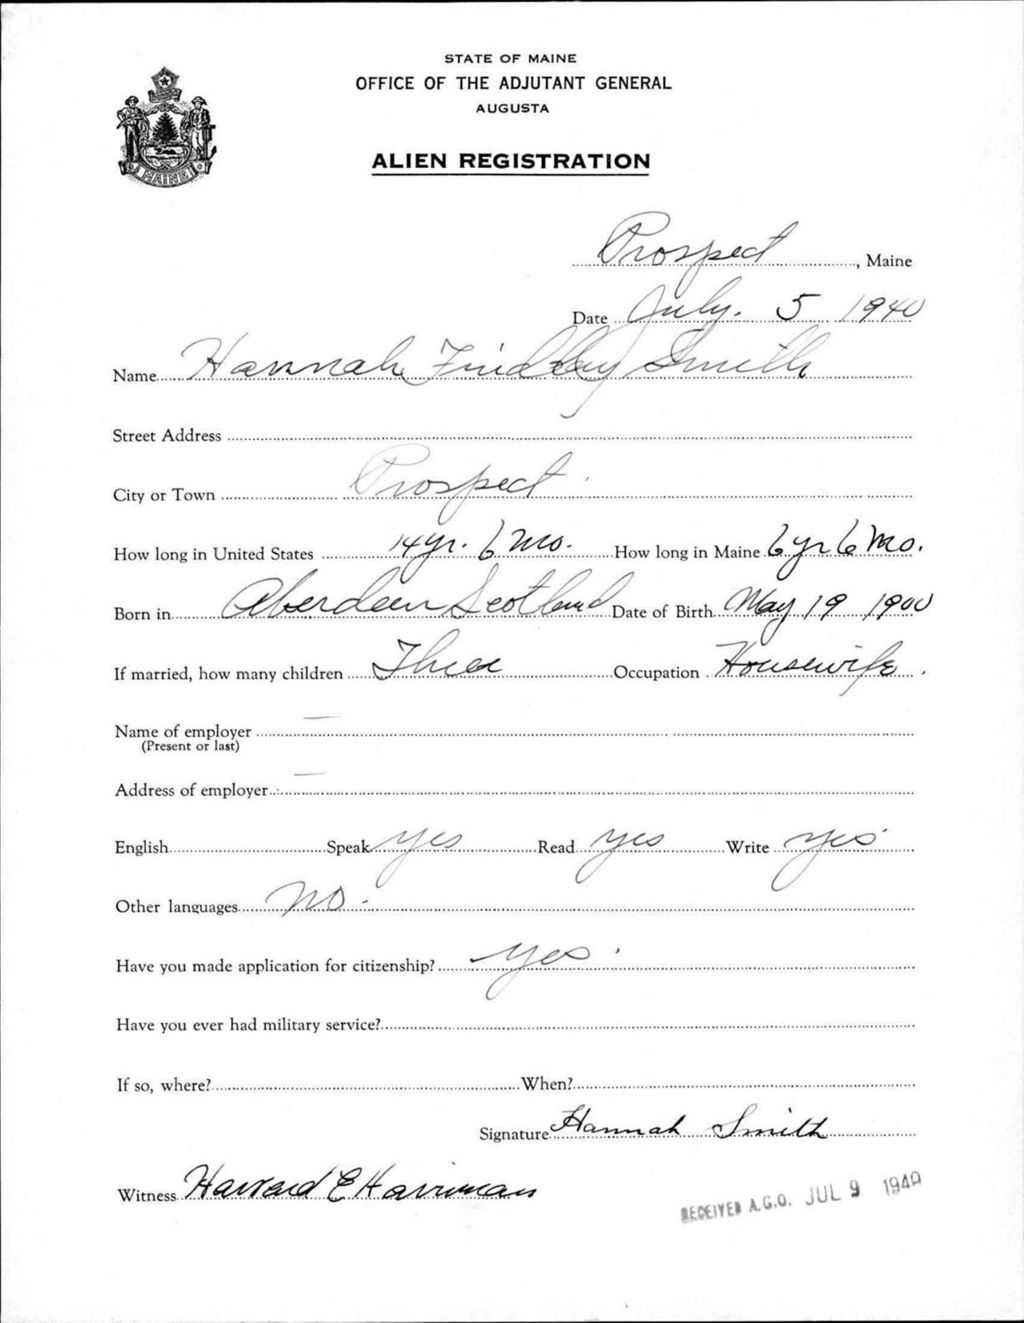 STATE OF MAINE
OFFICE OF THE ADJUTANT GENERAL
AUGUSTA
ALIEN REGISTRATION
MAINE
Prospect, Maine
Date July. 5 1940
Name Hannah Findlay Smith
Street Address
City or Town Prospect
How long in United States 14 yr. 6 Mo. How long in Maine 6 yr 6 Mo.
Born in Aberdeen Scotland Date of Birth May 19 1900
If married, how many children Three Occupation Housewife.
Name of employer —
(Present or last)
Address of employer —
English Speak yes Read yes Write yes
Other languages No.
Have you made application for citizenship? yes.
Have you ever had military service?
If so, where? When?
Signature Hannah Smith
Witness Harvard E Harriman
RECEIVED A.G.O. JUL 9 1940